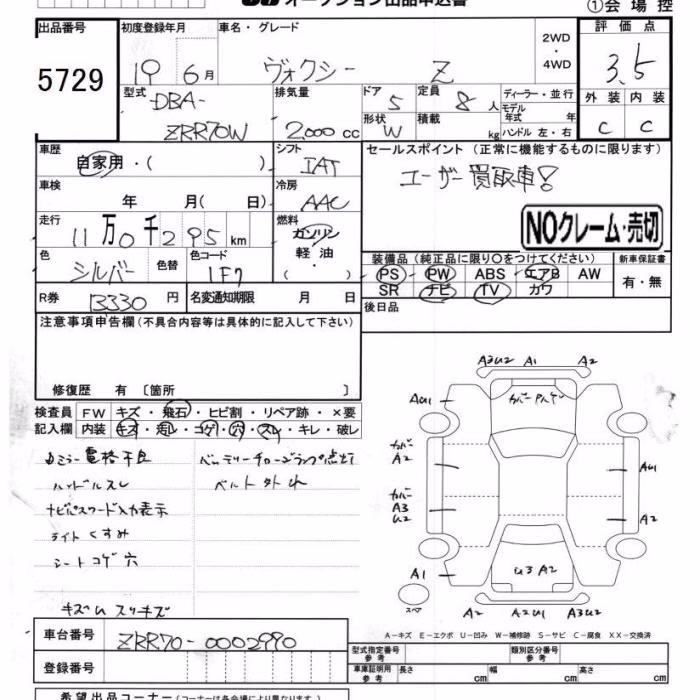 オークション出品申込書
①会場控
出品番号 5729
初度登録年月 19 6月
車名・グレード ヴォクシー Z
2WD・4WD
評価点 3.5
外装 内装
C C
型式 DBA-ZRR70W
排気量 2000 cc
ドア 5
形状 W
定員 8人
積載 kg
ディーラー・並行
モデル年式 年
ハンドル 左・右
車歴 自家用・( )
シフト IAT
車検 年 月( 日)
冷房 AAC
走行 11万0千295 km
燃料 ガソリン 軽油・( )
色 シルバー 色替
色コード 1F7
R券 13330 円
名変通知期限 月 日
セールスポイント (正常に機能するものに限ります)
ユーザー買取車!
NOクレーム・売切
装備品(純正品に限り○をつけてください)
PS PW ABS エアB AW
SR ナビ TV カワ
新車保証書
有・無
後日品
注意事項申告欄(不具合内容等は具体的に記入して下さい)
修復歴 有〔箇所 〕
検査員記入欄
FW キズ・飛石・ヒビ割・リペア跡・×要
内装 キズ・汚レ・コゲ・穴・スレ・キレ・破レ
ミラー電格不良
ハンドルスレ
ナビパスワード入力表示
ライトくすみ
シートコゲ穴
バッテリーチャージランプ点灯
ベルト外れ
A3U2 A1 A2
AU1
カバー
A2
AU1
カバー
A3
U2
A2
A1
U3 A2
スペア
A2 A2U1 A2
A-キズ E-エクボ U-凹み W-補修跡 S-サビ C-腐食 XX-交換済
車台番号 ZRR70-0002990
登録番号
型式指定番号 参考
類別区分番号 参考
車庫証明用 参考
長さ cm 幅 cm 高さ cm
希望出品コーナー(コーナーは各会場により異なります。)